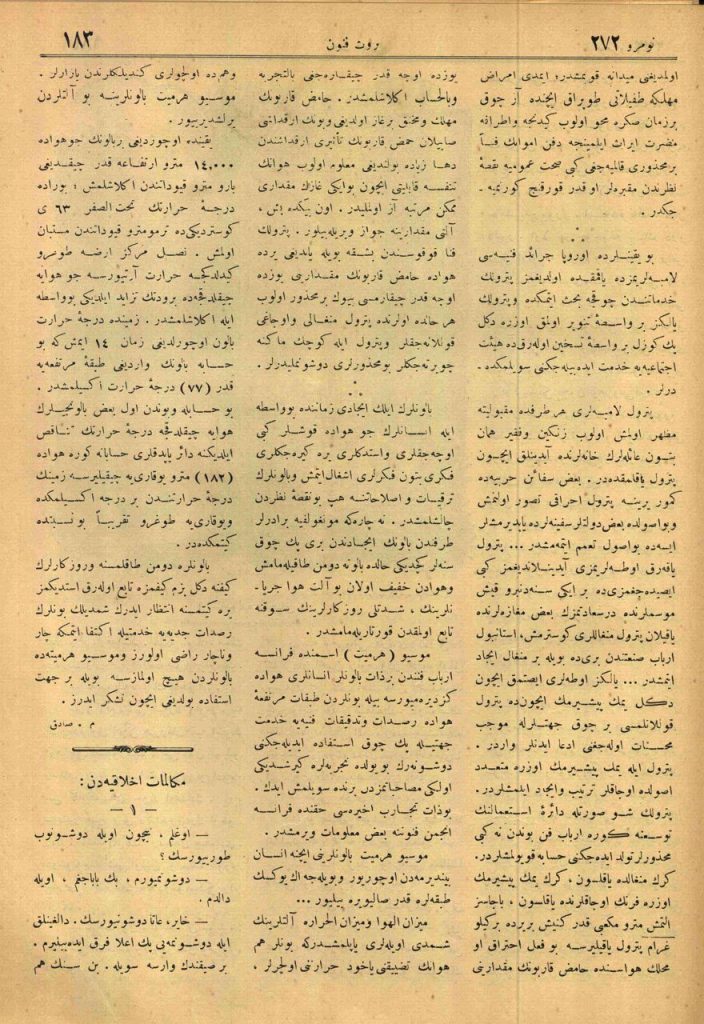 نومرو ٢٧٢
ثروت فنون
١٨٣
اولمدیغی میدانه قویمشدر؛ ایمدی امراض
مهلكه طفیلاتی طوپراق ایچنده آز چوق
برزمان صكره محو اولوب كیدنجه واطرافه
مضرت ایراث ایلمینجه دفن امواتك فناً
برمحذوری قالمیه‌جغی كبی صحت عمومیه نقطهٔ
نظرندن مقبره‌لر او قدر قورقنج كورنمیه ـ
جكدر .
بو یقینلرده اوروپا جرائد فنیه‌سی
لامبه‌لریمزده یاقمقده اولدیغمز پترولك
خدماتندن چوقجه بحث ایتمكده وپترولك
یالكز بر واسطهٔ تنویر اولمق اوزره دكل
پك كوزل بر واسطهٔ تسخین اوله‌رق‌ده هیئت
اجتماعیه‌یه خدمت ایده‌بیله‌جكنی سویلمكده ـ
درلر .
پترول لامبه‌لری هر طرفده مقبولیته
مظهر اولمش اولوب زنكین وفقیر همان
بتون عائله‌لرك خانه‌لرنده آیدینلق ایچون
پترول یاقلمقده‌در . بعض سفائن حربیه‌ده
كمور یرینه پترول احراقی تصور اولنمش
وبواصولده بعض دولتلر سفینه‌لرده یاپدیرمشلر
ایسه‌ده بواصول تعمم ایتمه‌مشدر ... پترول
یاقه‌رق اوطه‌لریمزی آیدینلاتدیغمز كبی
ایصیده‌جغمزی‌ده بر ایكی سنه‌دنبرو قیش
موسملرنده درسعادتمزك بعض مغازه‌لرنده
یاقیلان پترول منغاللری كوسترمش، استانبول
ارباب صنعتندن بری‌ده بویله بر منغال ایجاد
ایتمشدر ... یالكز اوطه‌لری ایصتمق ایچون
دكل یمك پیشیرمك ایچون‌ده پترول
قوللانلمسی بر چوق جهتلرله موجب
محسنات اوله‌جغنی ادعا ایدنلر واردر .
پترول ایله یمك پیشیرمك اوزره متعدد
اصولده اوجاقلر ترتیب وایجاد ایلمشلردر .
پترولك شو صورتله دائرهٔ استعمالنك
توسعنه كوره ارباب فن بوندن نه كبی
محذورلر تولد ایده‌جكنی حسابه قویولمشلردر.
كرك منغالده یاقلسون ، كرك یمك پیشیرمك
اوزره فرنك اوجاقلرنده یاقلسون ، باجاسز
التمش مترو مكعبی قدر كنیش بریرده بركیلو
غرام پترول یاقیلیرسه بو فعل احتراق او
محلك هواسنده حامض قاربونك مقدارینی
یوزده اوچه قدر چیقاره‌جغی بالتجربه
وبالحساب اكلاشلمشدر . حامض قاربونك
مهلك ومخنق برغاز اولدیغی وبونك ارقداشی
صاییلان حمض قاربونك تأثیری ارقداشندن
دها زیاده بولندیغی معلوم اولوب هوانك
تنفسه قابلیتی ایچون بوایكی غازك مقداری
ممكن مرتبه آز اولملیدر . اون بیكده بش ،
آلتی مقدارینه جواز ویریله‌بیلور . پترولك
فنا قوقوسندن بشقه بویله یاندیغی یرده
هواده حامض قاربونك مقدارینی یوزده
اوچه قدر چیقارمسی بیوك برمحذور اولوب
هر حالده اولرنده پترول منغالی واوجاغی
قوللانه‌جقلر وپترول ایله كوچك ماكنه
چویرته‌جكلر بومحذورلری دوشونملیدرلر .
بالونلرك ایلك ایجادی زماننده بوواسطه
ایله انسانلرك جو هواده قوشلر كبی
اوچه‌جقلری واستدكلری یره كیره‌جكلری
فكری بتون فكرلری اشغال ایتمش وبالونلرك
ترقیات و اصلاحاتنه هپ بونقطهٔ نظردن
چالشلمشدر . نه چاره‌كه مونغولفیه برادرلر
طرفندن بالونك ایجادندن بری پك چوق
سنه‌لر كچدیكی حالده بالونه دومن طاقیله‌مامش
وهوادن خفیف اولان بو آلت هوا جریا ـ
نلرینك ، شدتلی روزكارلرینك سوقنه
تابع اولمقدن قورتاریله‌مامشدر .
موسیو ( هرمیت ) اسمنده فرانسه
ارباب فنندن برذات بالونلر انسانلری هواده
كزدیره‌میورسه بیله بونلردن طبقات مرتفعهٔ
هواده رصدات وتدقیقات فنیه‌یه خدمت
جهتیله پك چوق استفاده ایدیله‌جكنی
دوشونه‌رك بو یولده تجربه‌لره كیرشدیكنی
اولكی مصاحباتمزدن برنده سویلمش ایدك .
بوذات تجارب اخیره‌سی حقنده فرانسه
انجمن فنوننه بعض معلومات ویرمشدر .
موسیو هرمیت بالونلرینی ایچنه انسان
بیندیرمه‌دن اوچوریور وبویله‌جه اك یوكسك
طبقه‌لره قدر صالیویره بیلیور ...
میزان الهوا ومیزان الحراره آلتلرینك
شمدی اویله‌لری یاپلمشدركه بونلر هم
هوانك تضییقنی یاخود حرارتنی اولچرلر ،
وهم‌ده اولچولری كندیلكلرندن یازارلر .
موسیو هرمیت بالونلرینه بو آلتلردن
یرلشدیریور .
یقینده اوچوردیغی بربالونك جوهواده
١٤,٠٠٠ مترو ارتفاعه قدر چیقدیغی
بارو مترو قیوداتندن اكلاشلمش ؛ بوراده
درجهٔ حرارتك تحت‌الصفر ٦٣ ی
كوستردیكی‌ده ترمومترو قیوداتندن مستبان
اولمش . نصل مركز ارضه طوغرو
كیدلدكجه حرارت آرتیورسه جو هوایه
چیقلدقجه‌ده برودتك تزاید ایلدیكی بوواسطه
ایله اكلاشلمشدر . زمینده درجهٔ حرارت
بالون اوچورلدیغی زمان ١٤ ایمش‌كه بو
حسابه بالونك واردیغی طبقهٔ مرتفعه‌یه
قدر (٧٧) درجهٔ حرارت اكسیلمشدر .
بو حسابله وبوندن اول بعض بالونجیلرك
هوایه چیقلدقجه درجهٔ حرارتك تناقص
ایلدیكنه دائر یاپدقلری حساباته كوره هواده
(١٨٢) مترو یوقاری‌یه چیقیلیرسه زمینك
درجهٔ حرارتندن بر درجه اكسیلمكده
ویوقاری‌یه طوغرو تقریباً بو نسبتده
كیتمكده‌در .
بالونلره دومن طاقلمسنه وروزكارلرك
كیفنه دكل بزم كیفمزه تابع اوله‌رق استدیكمز
یره كیتمسنه انتظار ایدرك شمدیلك بونلرك
رصدات جدیه‌یه خدمتیله اكتفا ایتمكه چار
وناچار راضی اولورز وموسیو هرمیته‌ده
بالونلردن هیچ اولمازسه بویله بر جهت
استفاده بولدیغی ایچون تشكر ایدرز .
م . صادق
مكالمات اخلاقیه‌دن :
— ١ —
— اوغلم ، نیچون اویله دوشونوب
طوریورسك ؟
— دوشونمیورم ، بك باباجغم ، اویله
دالدم .
— خایر، عادتا دوشونیورسك. دالغینلق
ایله دوشونمه‌یی پك اعلا فرق ایده‌بیلیرم .
بر صیقندك وارسه سویله . بن سنك هم